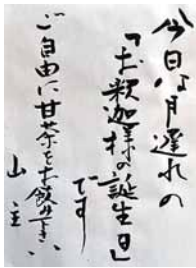 今日は月遅れの
「お釈迦様の誕生日」
です
ご自由に甘茶をお飲み下さい
山主